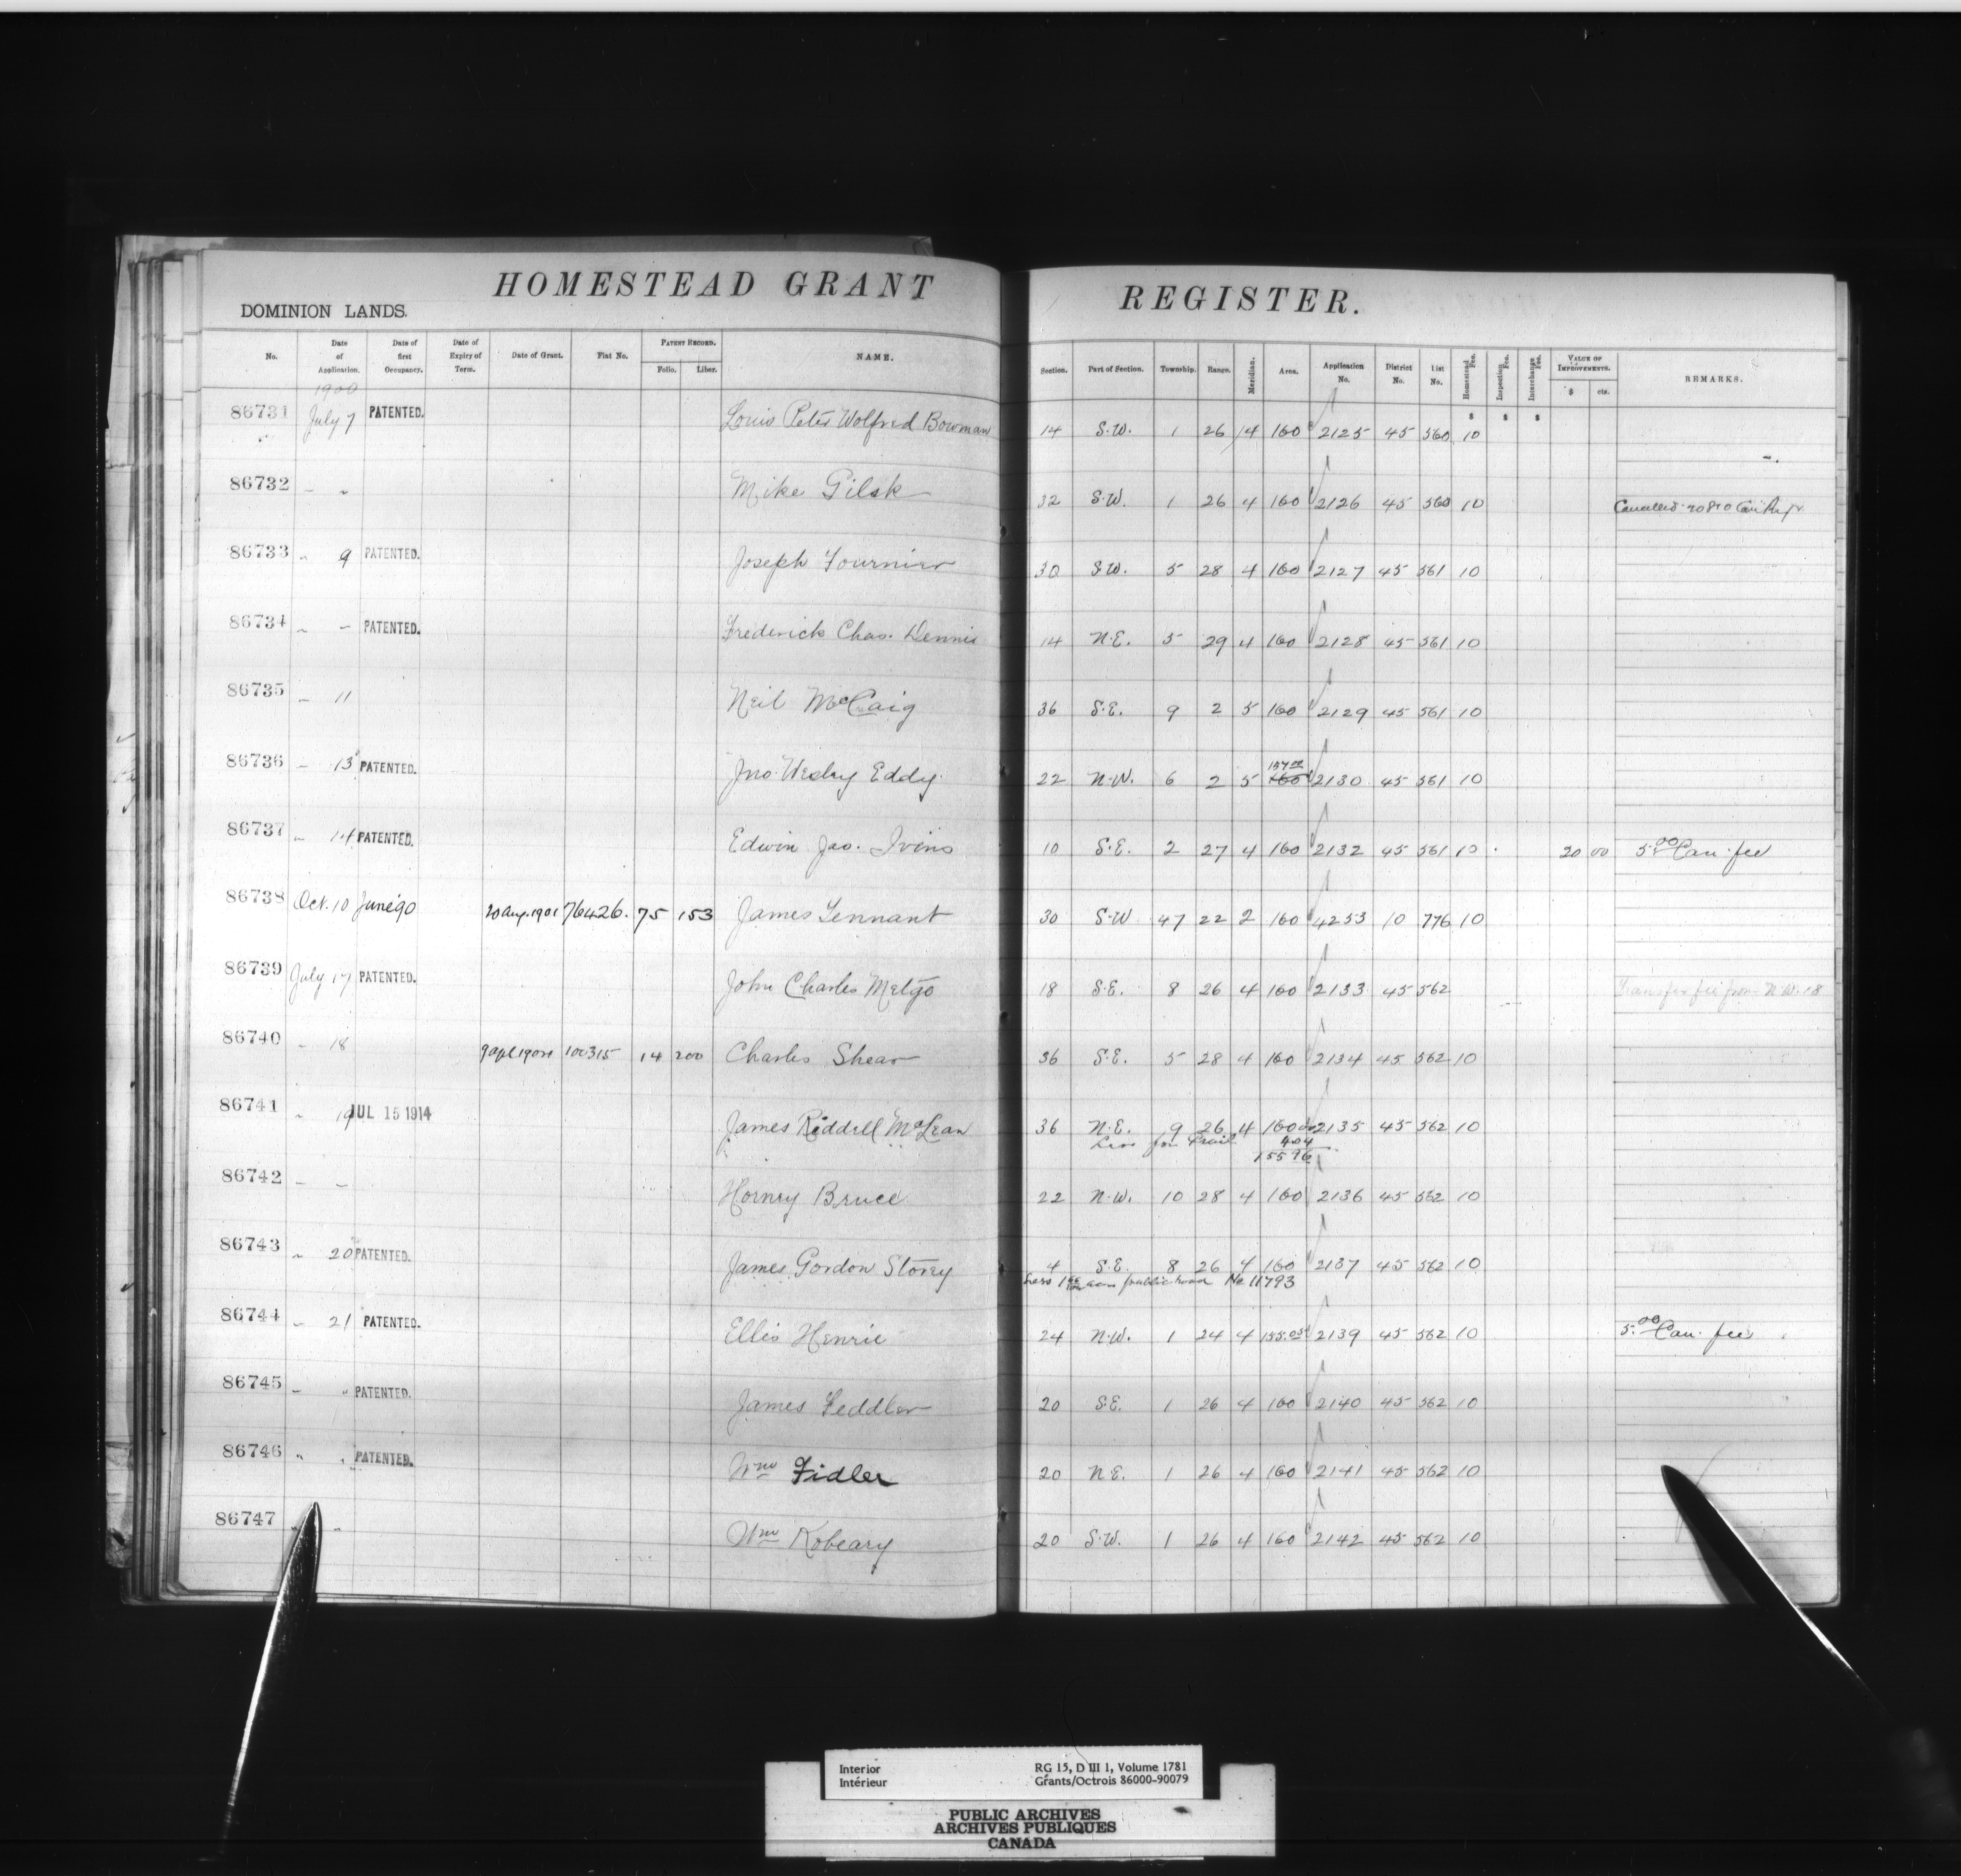 HOMESTEAD GRANT REGISTER.
DOMINION LANDS.
No. Date of Application. Date of first Occupancy. Date of Expiry of Term. Date of Grant. Fiat No. PATENT RECORD. Folio. Liber. NAME. Section. Part of Section. Township. Range. Meridian. Area. Application No. District No. List No. Homestead Fee. Inspection Fee. Interchange Fee. VALUE OF IMPROVEMENTS. $ cts. REMARKS.
1900
$ $ $
86731 July 7 PATENTED. Louis Peter Wolfred Bowman 14 S.W. 1 26 4 160 2125 45 560 10
86732 " " Mike Gilsk 32 S.W. 1 26 4 160 2126 45 560 10 Cancelled
86733 " 9 PATENTED. Joseph Fournier 30 S.W. 5 28 4 160 2127 45 561 10
86734 " " PATENTED. Frederick Chas. Dennis 14 N.E. 5 29 4 160 2128 45 561 10
86735 " 11 Neil McCaig 36 S.E. 9 2 5 160 2129 45 561 10
157 00
86736 " 13 PATENTED. Jno. Wesley Eddy. 22 N.W. 6 2 5 160 2130 45 561 10
86737 " 14 PATENTED. Edwin Jas. Ivins 10 S.E. 2 27 4 160 2132 45 561 10 20 00 5.00 Can. fee
86738 Oct. 10 June 90 20 Aug. 1901 76426. 75 153 James Tennant 30 S.W 47 22 2 160 4253 10 776 10
86739 July 17 PATENTED. John Charles Metgo 18 S.E. 8 26 4 160 2133 45 562 Transfer fee from N.W. 18
86740 " 18 9 Apl 1904 100315 14 200 Charles Shear 36 S.E. 5 28 4 160 2134 45 562 10
86741 " 19 JUL 15 1914 James Riddell McLean 36 N.E. 9 26 4 160 00 2135 45 562 10
Less for Trail 4 04
155 96
86742 " " Hornry Bruce 22 N.W. 10 28 4 160 2136 45 562 10
86743 " 20 PATENTED. James Gordon Storey 4 S.E. 8 26 4 160 2137 45 562 10
Less 1 acres public road No 11793
86744 " 21 PATENTED. Ellis Henrie 24 N.W. 1 24 4 155.05 2139 45 562 10 5.00 Can. fee
86745 " " PATENTED. James Feddler 20 S.E. 1 26 4 160 2140 45 562 10
86746 " " PATENTED. Wm Fidler 20 N.E. 1 26 4 160 2141 45 562 10
86747 " " Wm Kobeary 20 S.W. 1 26 4 160 2142 45 562 10
Interior RG 15, D III 1, Volume 1781
Intérieur Grants/Octrois 86000-90079
PUBLIC ARCHIVES
ARCHIVES PUBLIQUES
CANADA